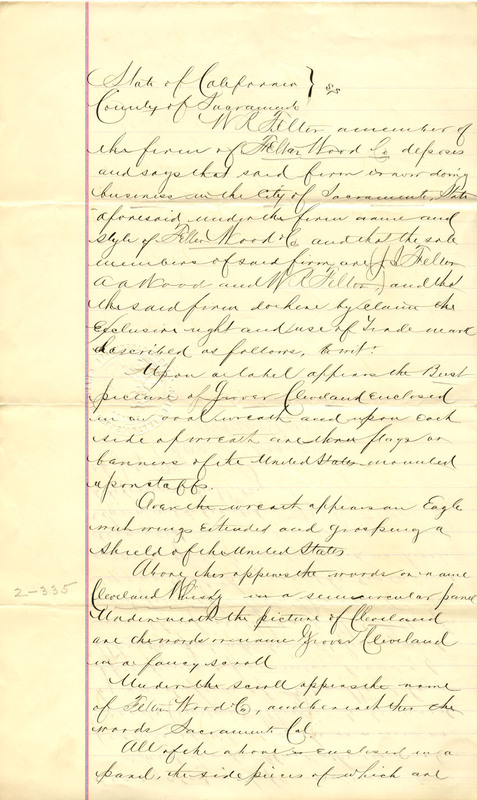 State of California } ss
County of Sacramento
W R Felton a member of
the firm of Felton Wood & Co deposes
and says that said firm is now doing
business in the City of Sacramento, State
aforesaid under the firm name and
style of Felton Wood & Co and that the sole
members of said firm are J I Felton
A A Wood and W R Felton, and that
the said firm do hereby claim the
exclusive right and use of Trade mark
described as follows, to wit:
Upon a label appears the Bust
picture of Grover Cleveland enclosed
in an oval wreath and upon each
side of wreath are three flags or
banners of the United States mounted
upon staffs.
Over the wreath appears an Eagle
with wings extended and grasping a
shield of the United States
Above this appears the words or name
Cleveland Whisky in a semicircular panel
Underneath the picture of Cleveland
are the words or name Grover Cleveland
in a fancy scroll
Under the scroll appears the name
of Felton Wood & Co, and beneath this the
words Sacramento Cal.
All of the above is enclosed in a
panel, the side pieces of which are
2-335